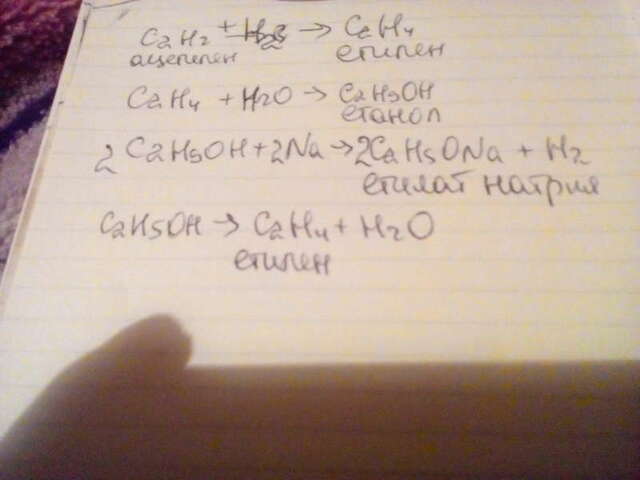 C2H2 + H2 → C2H4
ацетилен етилен
C2H4 + H2O → C2H5OH
етанол
2 C2H5OH + 2Na → 2C2H5ONa + H2
етилат натрия
C2H5OH → C2H4 + H2O
етилен